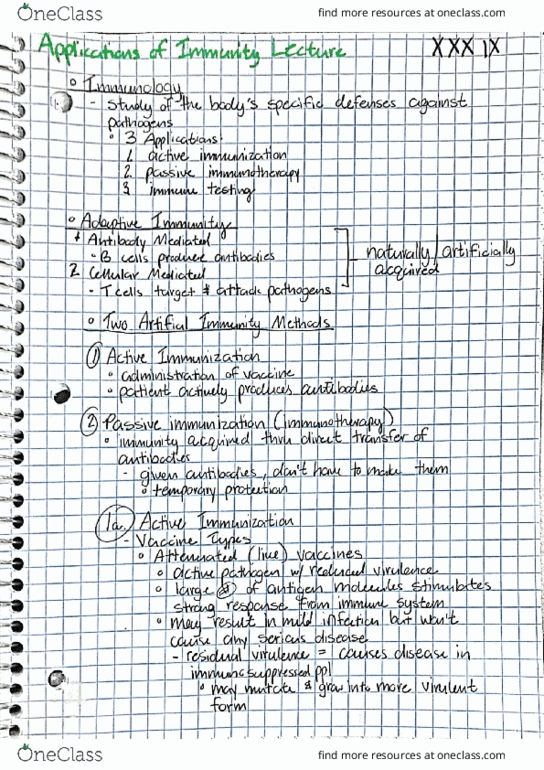 OneClass
find more resources at oneclass.com
Applications of Immunity Lecture XXXIX
Immunology
- Study of the body's specific defenses against
pathogens
3 Applications:
1. active immunization
2. passive immunotherapy
3 immune testing
Adaptive Immunity
1 Antibody Mediated
- B cells produce antibodies
naturally/artificially
acquired
2. Cellular Mediated
- T cells target & attack pathogens
Two Artifial Immunity Methods
1 Active Immunization
administration of vaccine
patient actively produces antibodies
2 Passive immunization (immunotherapy)
immunity acquired thru direct transfer of
antibodies
- given antibodies, don't have to make them
temporary protection
1a. Active Immunization
- Vaccine Types
Attenuated (live) vaccines
active pathogen w/ reduced virulence
large # of antigen molecules stimulates
strong response from immune system
may result in mild infection but won't
cause any serious disease
- residual virulence = causes disease in
immune suppressed ppl
may mutate & grow into more virulent
form
OneClass
find more resources at oneclass.com